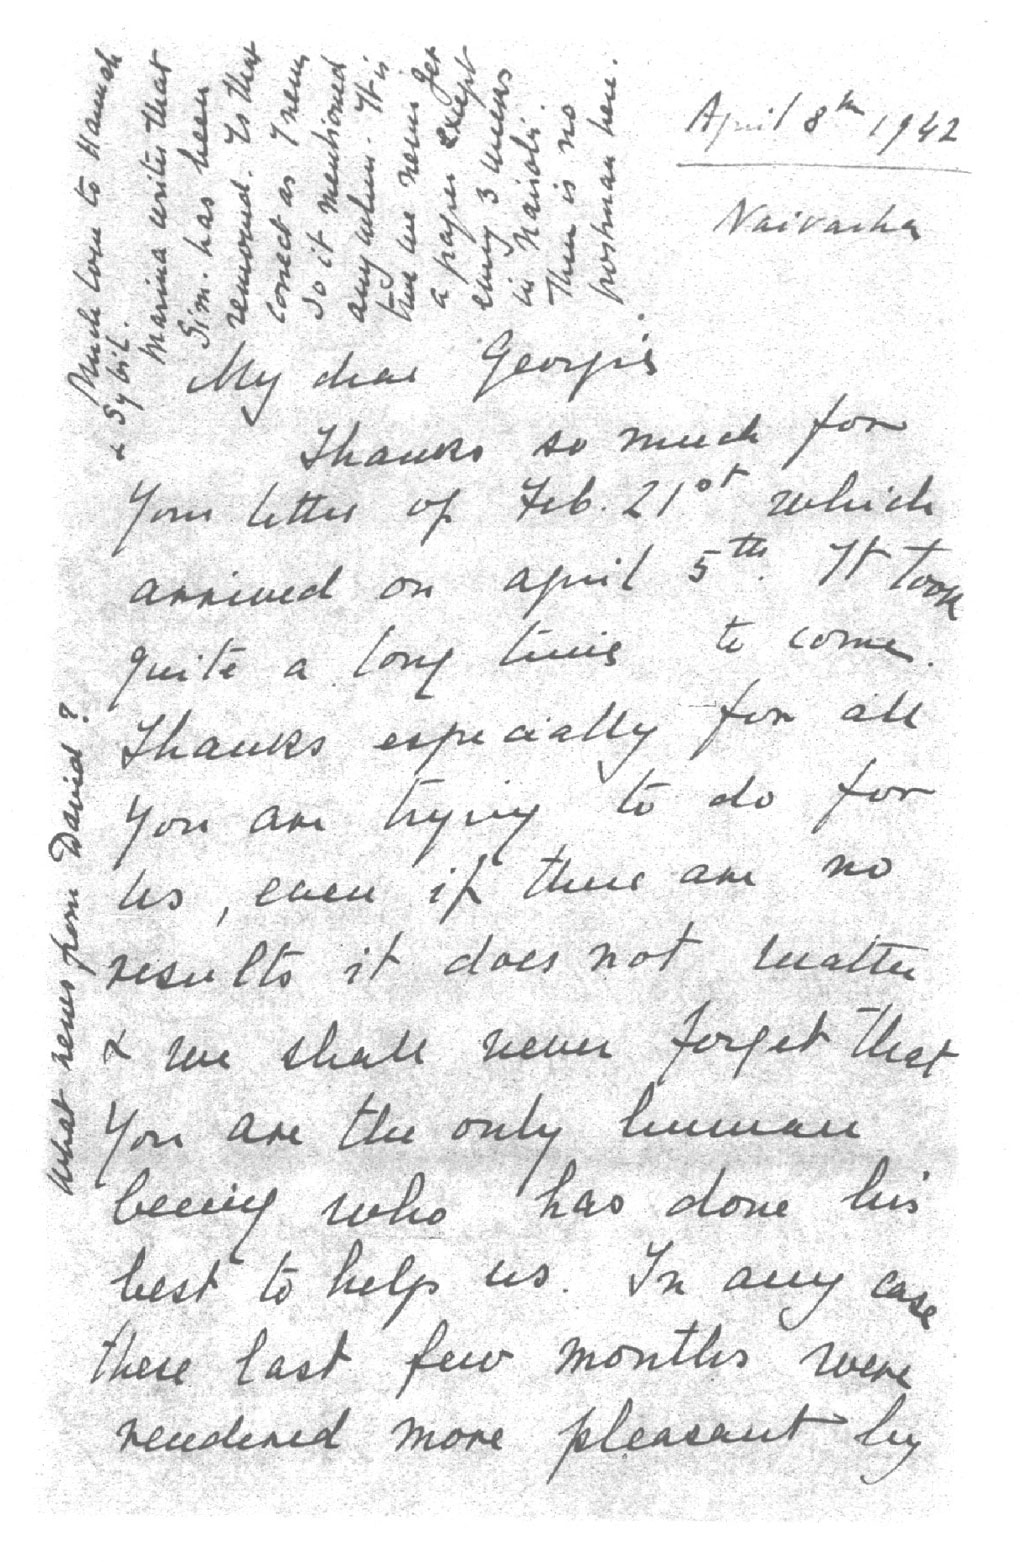 April 8th 1942
Naivasha
My dear Georgie
Thanks so much for
your letter of Feb. 21st which
arrived on april 5th. It took
quite a long time to come.
Thanks especially for all
you are trying to do for
us, even if there are no
results it does not matter
& we shall never forget that
you are the only human
being who has done his
best to help us. In any case
these last few months were
rendered more pleasant by
What news from David?
Much love to Hannah
& Sybil.
Marina writes that
Sim. has been
removed. Is that
correct as I never
so it mentioned
anywhere. It is
true we never get
a paper except
every 3 weeks
in Nairobi.
There is no
postman here.